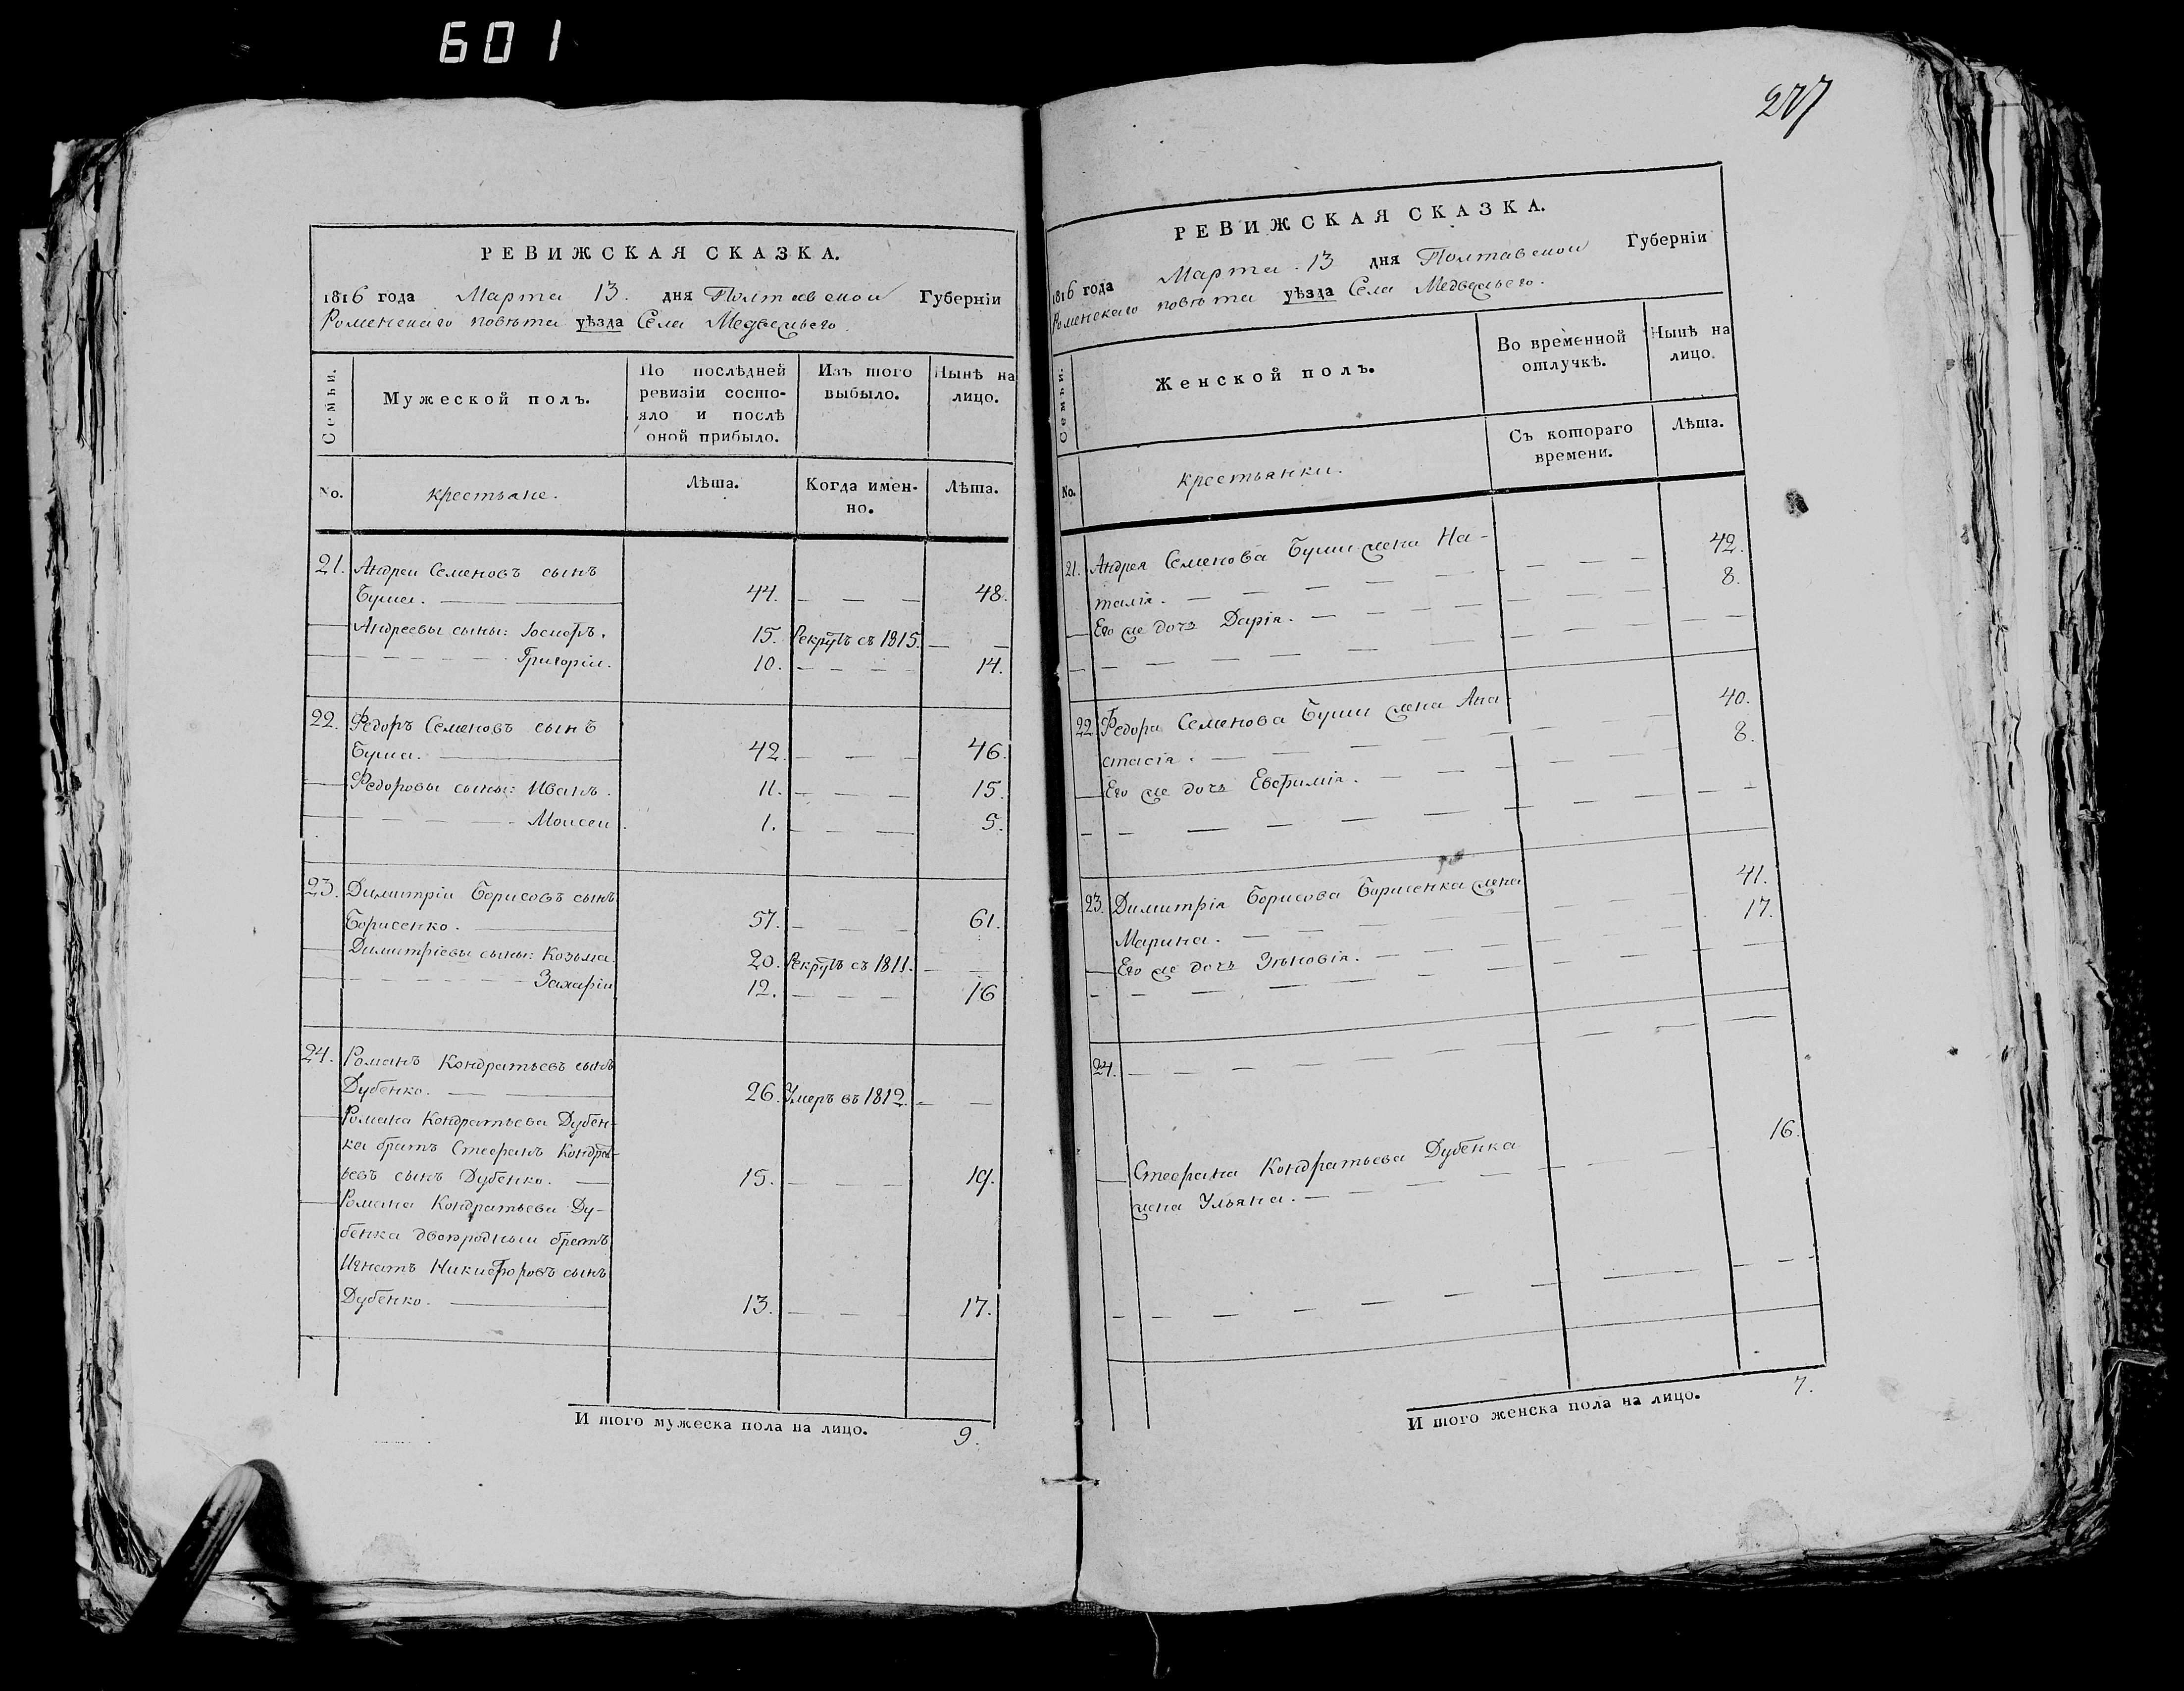 601
277
РЕВИЖСКАЯ СКАЗКА.
1816 года Марта 13. дня Полтавской Губерніи
Роменскаго повѣта уѣзда Села Медвежьего.
Семьи.
Мужеской полъ.
По послѣдней ревизіи состояло и послѣ оной прибыло.
Изъ того выбыло.
Нынѣ на лицо.
No.
крестьяне.
Лѣта.
Когда именно.
Лѣта.
21. Андрей Семеновъ сынъ
Буша. 44. 48.
Андреевы сыны: Іосифъ. 15. Рекрутъ съ 1815.
Григорій. 10. 14.
22. Федоръ Семеновъ сынъ
Буша. 42. 46.
Федоровы сыны: Иванъ. 11. 15.
Моисей 1. 5.
23. Димитрій Борисовъ сынъ
Борисенко. 57. 61.
Димитріевы сыны: Козьма. 20. Рекрутъ съ 1811.
Захарій 12. 16
24. Романъ Кондратьевъ сынъ
Дубенко. 26. Умеръ въ 1812.
Романа Кондратьева Дубен-
ка братъ Стефанъ Кондра-
ьевъ сынъ Дубенко. 15. 19.
Романа Кондратьева Ду-
бенка двоюродный братъ
Игнатъ Никифоровъ сынъ
Дубенко. 13. 17.
И того мужеска пола на лицо. 9.
РЕВИЖСКАЯ СКАЗКА.
1816 года Марта 13 дня Полтавской Губерніи
Роменскаго повѣта уѣзда Села Медвежьего.
Семьи.
Женской полъ.
Во временной отлучкѣ.
Нынѣ на лицо.
No.
крестьянки.
Съ котораго времени.
Лѣта.
21. Андрея Семенова Буши жена На-
талія. 42.
Его же дочь Дарія. 8.
22. Федора Семенова Буши жена Ана-
стасія. 40.
Его же дочь Евфимія. 8.
23. Димитрія Борисова Борисенка жена
Марина. 41.
Его же дочь Зѣновія. 17.
24.
Стефана Кондратьева Дубенка
жена Ульяна. 16.
И того женска пола на лицо. 7.